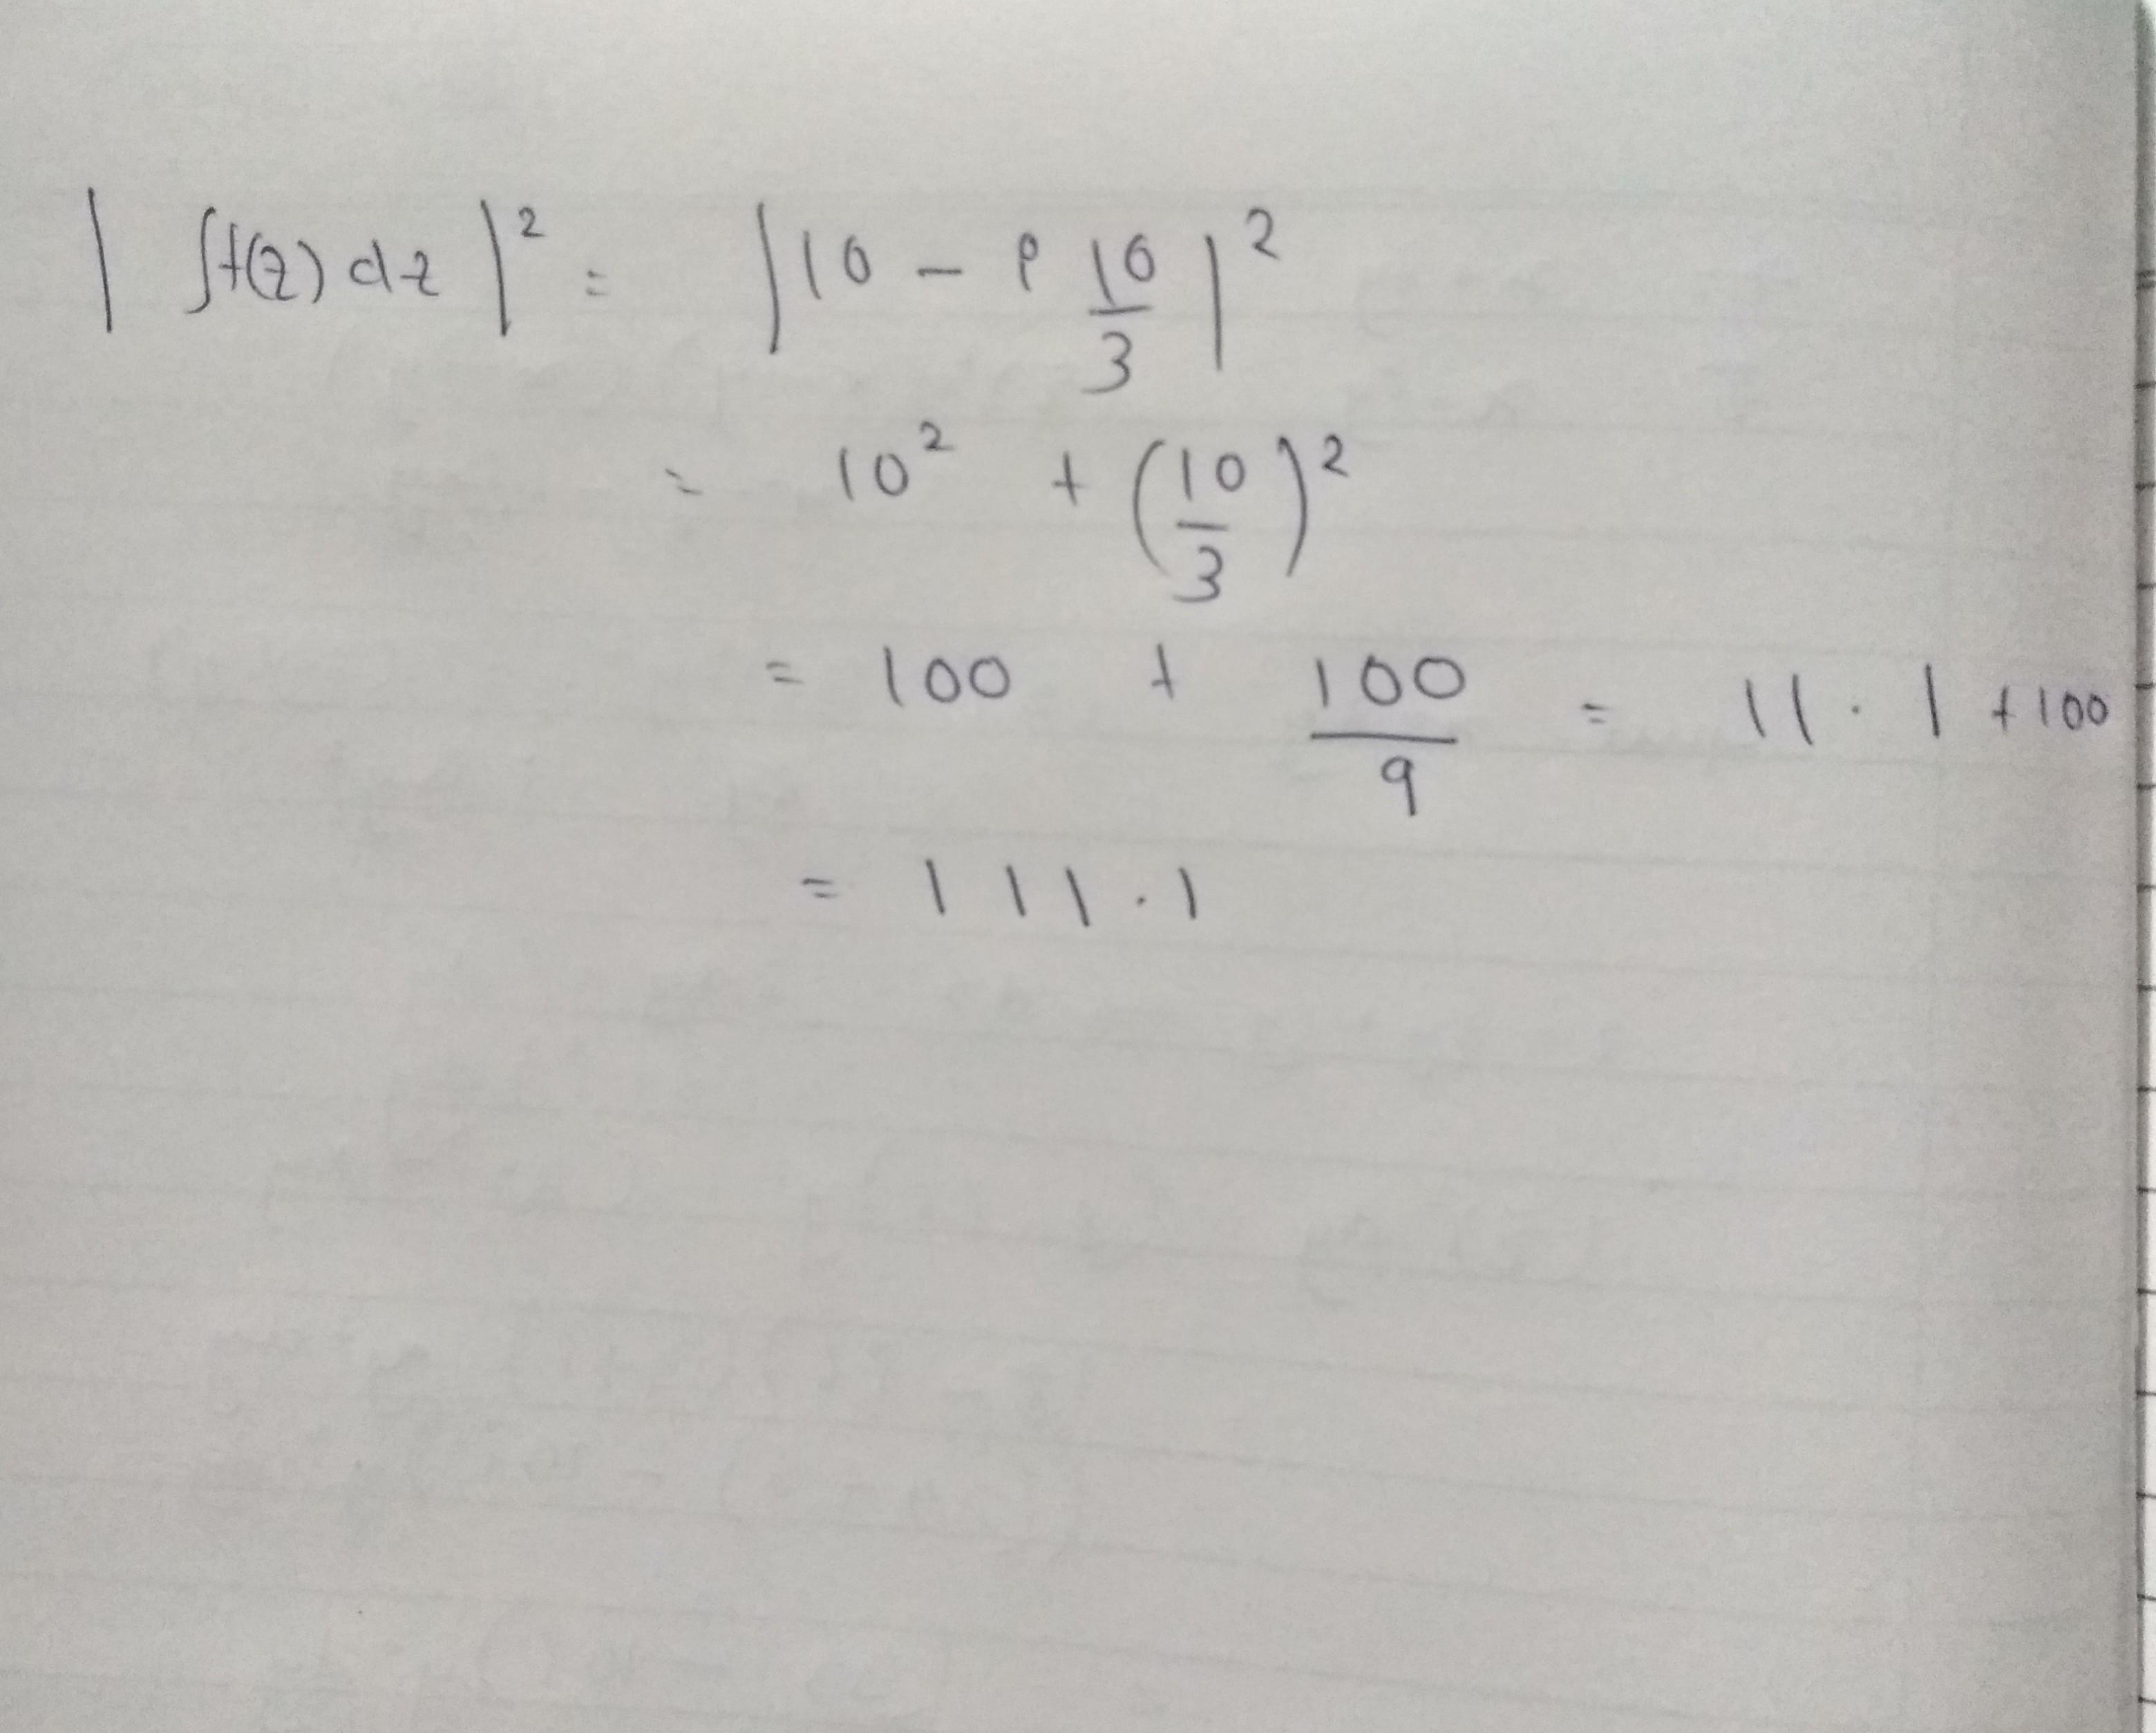 | ∫f(z) dz |² = | 10 - i 10/3 |²
= 10² + (10/3)²
= 100 + 100/9 = 11.1 + 100
= 111.1